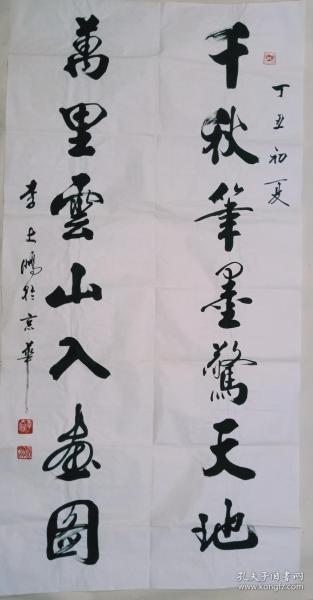 丁丑初夏
千秋筆墨驚天地
萬里雲山入畫圖
李士鵬於京華
孔夫子旧书网
www.kongfz.com